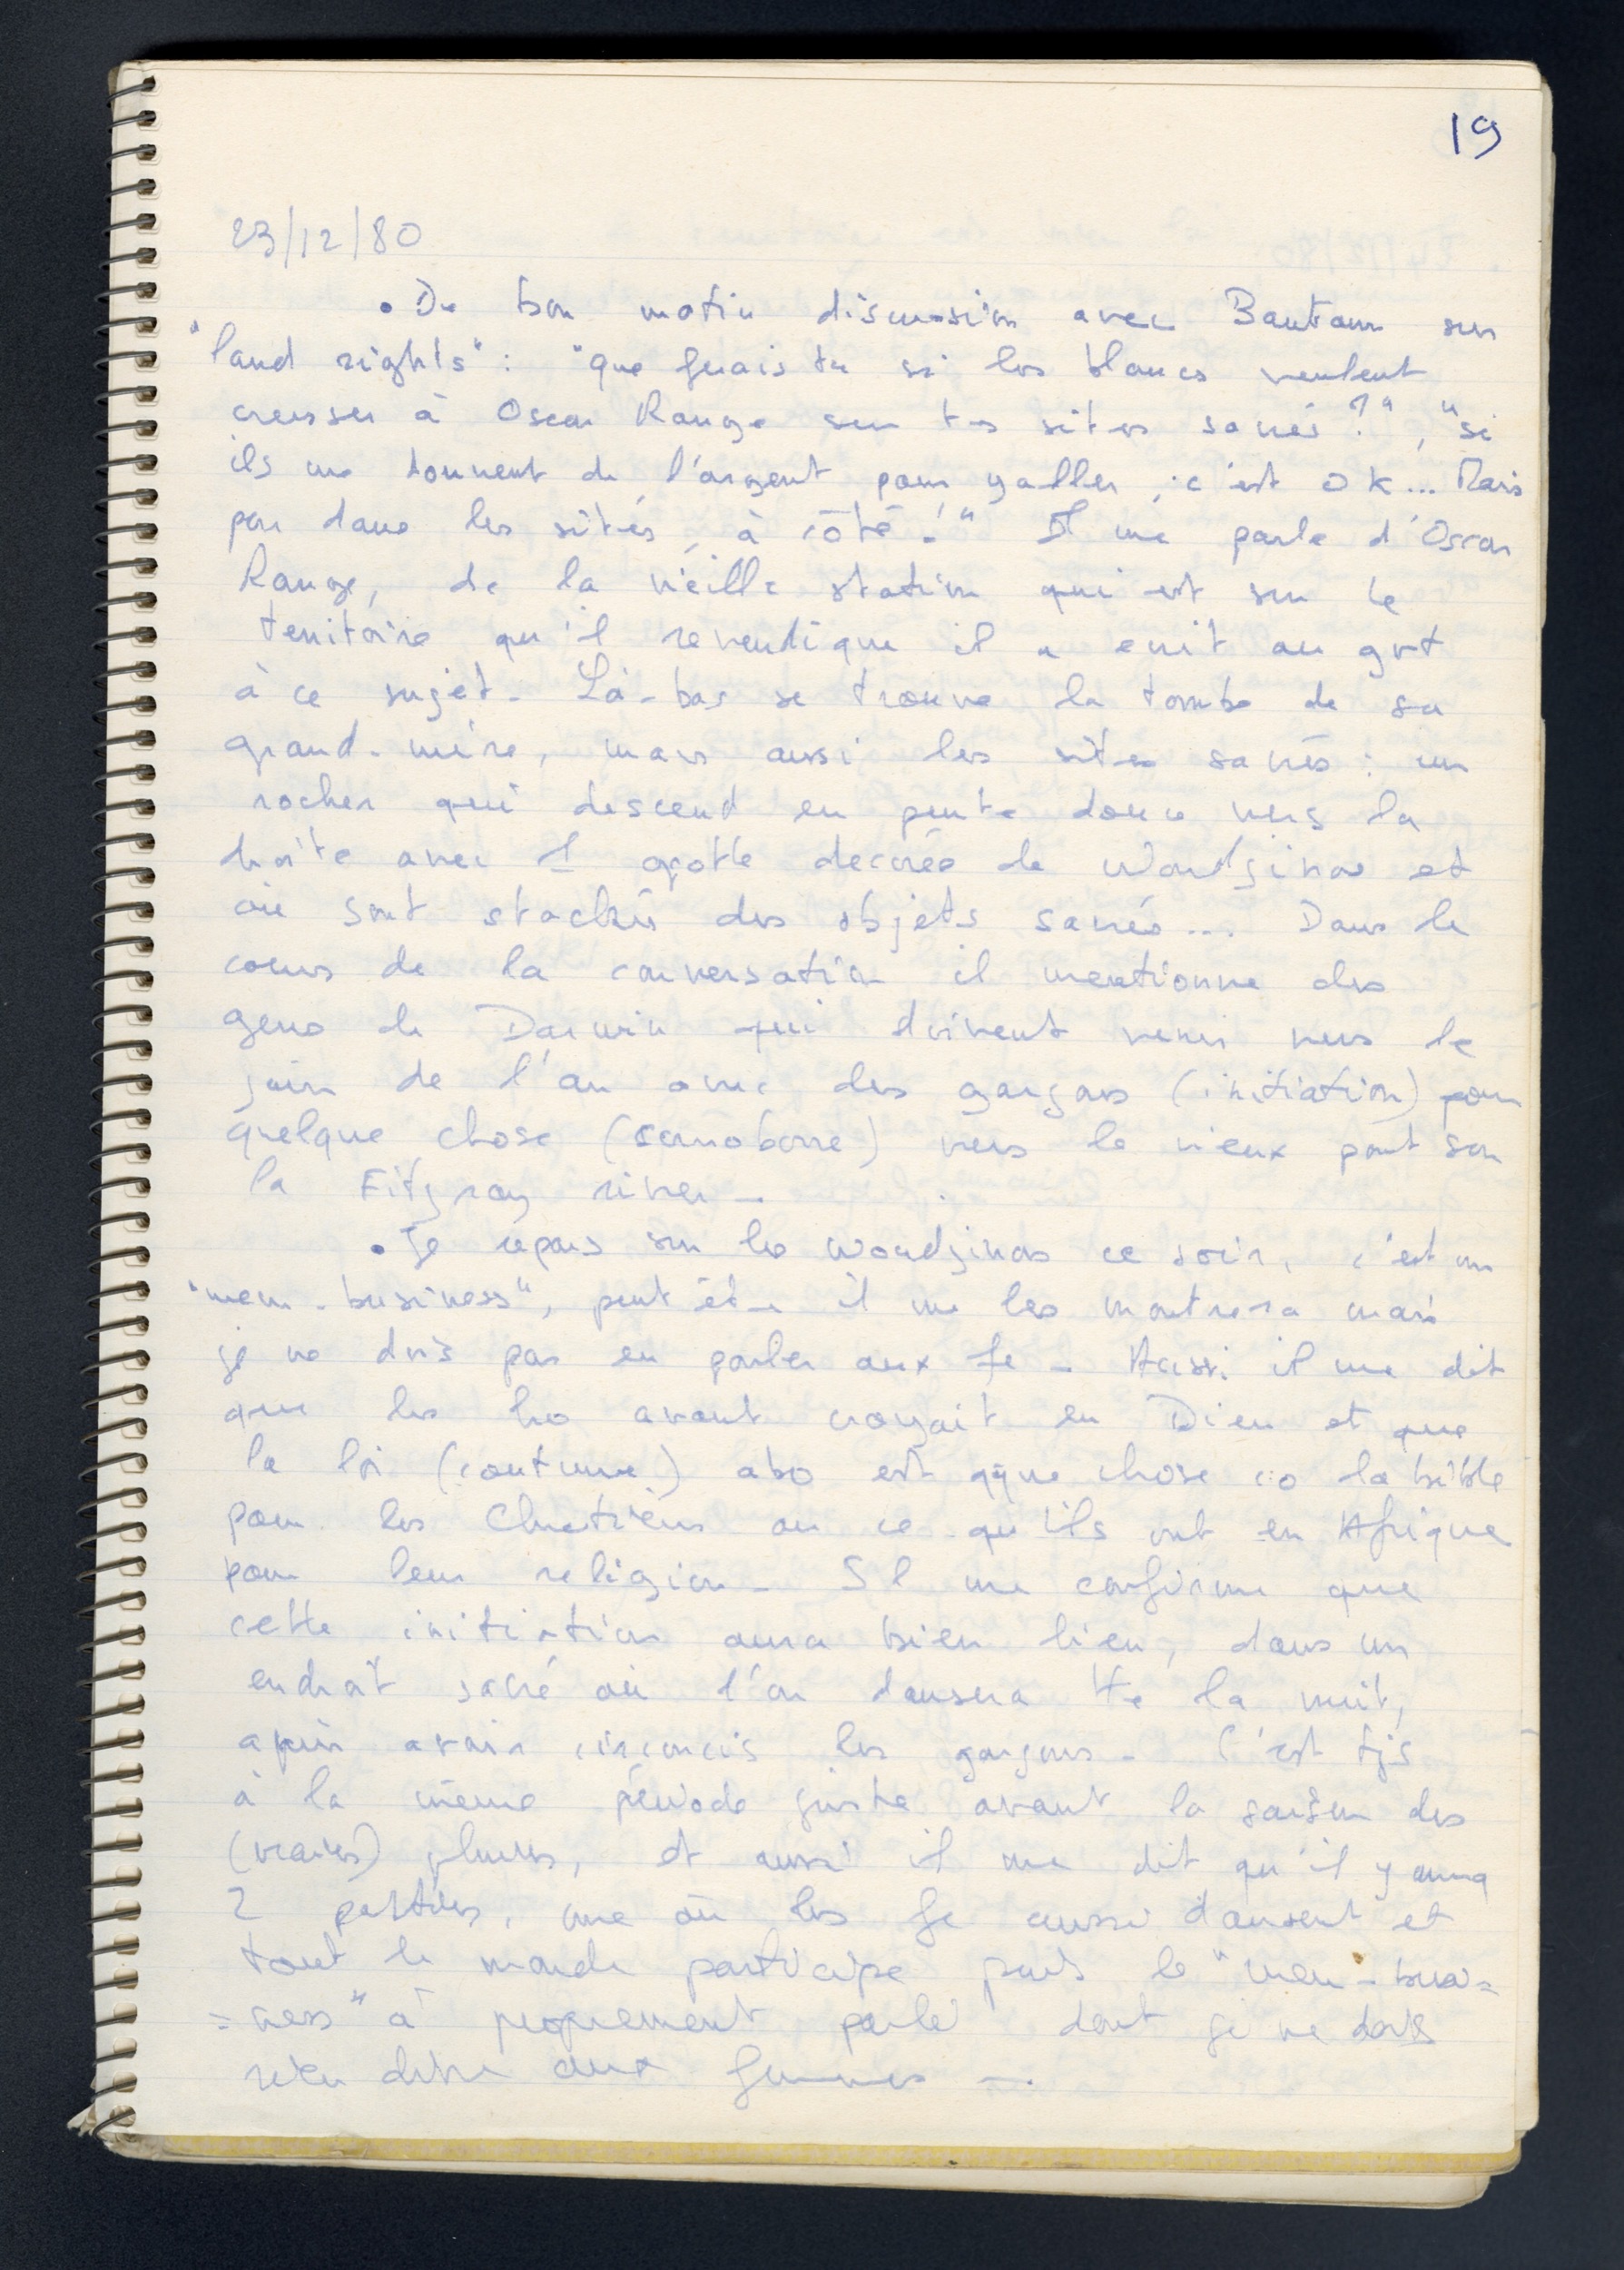 19
23/12/80
• De bon matin discussion avec Bantam sur
"land rights": "que ferais tu si les blancs veulent
creuser à Oscar Range sur tes sites sacrés?", "si
ils me donnent de l'argent pour y aller, c'est OK... Mais
pas dans les sites, à côté!" Il me parle d'Oscar
Range, de la vieille station qui est sur le
territoire qu'il revendique il a écrit au gvt
à ce sujet - Là-bas se trouve la tombe de sa
grand-mère, mais aussi les sites sacrés: un
rocher qui descend en pente douce vers la
droite avec 1 grotte décorée de Wondjinas et
où sont stockés des objets sacrés... Dans le
cours de la conversation il mentionne des
gens de Darwin qui doivent venir vers le
juin de l'an avec des garçons (initiation) pour
quelque chose vers le vieux pont sur
la Fitzroy river -
• Je repars sur les Wondjinas ce soir, c'est un
"men-business", peut être il me les montrera mais
je ne dois pas en parler aux fe - Aussi il me dit
que les ho avant croyait en Dieu et que
la loi (coutume) abo est qque chose co la bible
pour les Chrétiens ou ce qu'ils ont en Afrique
pour leur religion - Il me confirme que
cette initiation aura bien lieu, dans un
endroit sacré où l'on dansera tte la nuit,
après avoir circoncis les garçons - C'est tjs
à la même période juste avant la saison des
(vraies) pluies, et aussi il me dit qu'il y aura
2 parties, une où les fe aussi dansent et
tout le monde participe puis le "men-busi=
=ness" à proprement parlé dont je ne dois
rien dire aux femmes -.